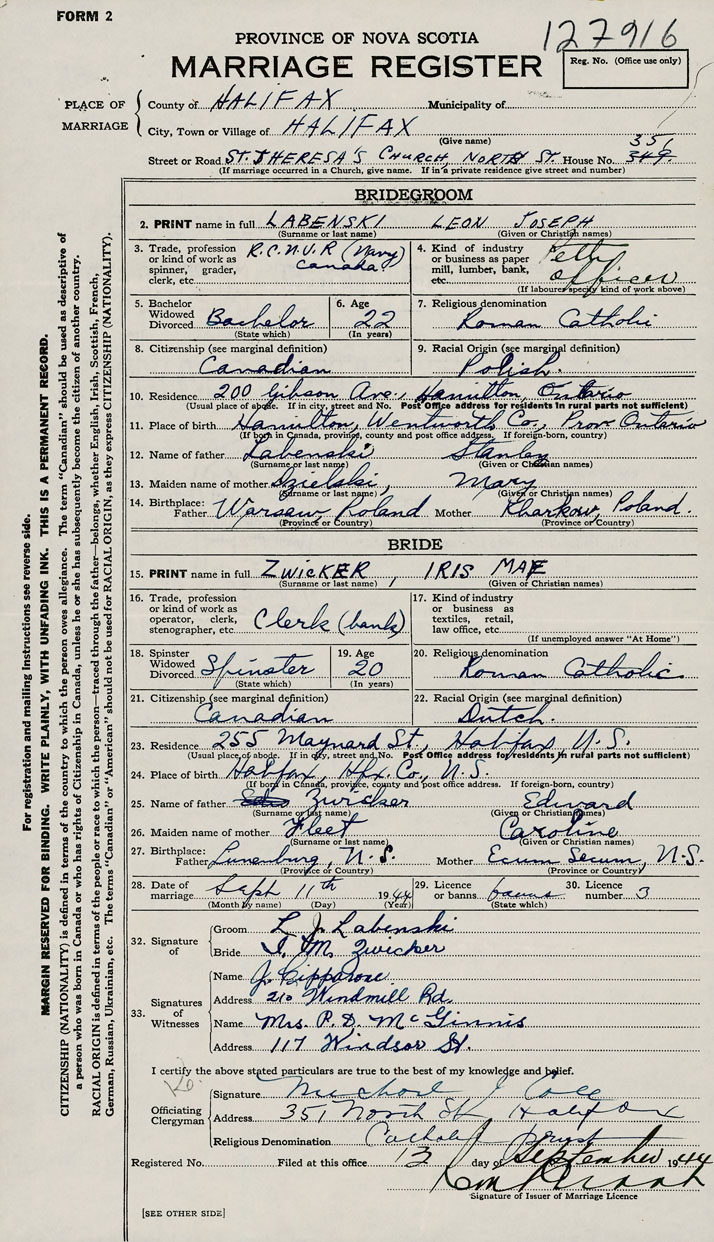 FORM 2
127916
PROVINCE OF NOVA SCOTIA
MARRIAGE REGISTER
Reg. No. (Office use only)
PLACE OF MARRIAGE
County of HALIFAX Municipality of
City, Town or Village of HALIFAX
(Give name)
351
Street or Road ST. THERESA'S CHURCH, NORTH ST. House No. 349
(If marriage occurred in a Church, give name. If in a private residence give street and number)
BRIDEGROOM
2. PRINT name in full LABENSKI LEON JOSEPH
(Surname or last name) (Given or Christian names)
3. Trade, profession or kind of work as spinner, grader, clerk, etc. R.C.N.V.R (Navy) Canada
4. Kind of industry or business as paper mill, lumber, bank, etc. Petty Officer
(If labourer specify kind of work above)
5. Bachelor Widowed Divorced Bachelor (State which)
6. Age 22 (In years)
7. Religious denomination Roman Catholic
8. Citizenship (see marginal definition) Canadian
9. Racial Origin (see marginal definition) Polish.
10. Residence 200 Gibson Ave., Hamilton, Ontario
(Usual place of abode. If in city, street and No. Post Office address for residents in rural parts not sufficient)
11. Place of birth Hamilton, Wentworth Co., Prov Ontario
(If born in Canada, province, county and post office address. If foreign-born, country)
12. Name of father Labenski Stanley
(Surname or last name) (Given or Christian names)
13. Maiden name of mother Dzielski, Mary
(Surname or last name) (Given or Christian names)
14. Birthplace: Father Warsaw Poland Mother Kharkow, Poland.
(Province or Country) (Province or Country)
BRIDE
15. PRINT name in full ZWICKER, IRIS MAE
(Surname or last name) (Given or Christian names)
16. Trade, profession or kind of work as operator, clerk, stenographer, etc. Clerk (bank)
17. Kind of industry or business as textiles, retail, law office, etc.
(If unemployed answer "At Home")
18. Spinster Widowed Divorced Spinster (State which)
19. Age 20 (In years)
20. Religious denomination Roman Catholic
21. Citizenship (see marginal definition) Canadian
22. Racial Origin (see marginal definition) Dutch.
23. Residence 255 Maynard St., Halifax, N.S.
(Usual place of abode. If in city, street and No. Post Office address for residents in rural parts not sufficient)
24. Place of birth Halifax, Hfx. Co., N.S.
(If born in Canada, province, county and post office address. If foreign-born, country)
25. Name of father Zwicker Edward
(Surname or last name) (Given or Christian names)
26. Maiden name of mother Fleet Caroline
(Surname or last name) (Given or Christian names)
27. Birthplace: Father Lunenburg, N.S. Mother Ecum Secum, N.S.
(Province or Country) (Province or Country)
28. Date of marriage Sept 11th 1944
(Month by name) (Day) (Year)
29. Licence or banns banns (State which)
30. Licence number 3
32. Signature of
Groom L. J. Labenski
Bride I. M. Zwicker
33. Signatures of Witnesses
Name J.
Address 210 Windmill Rd.
Name Mrs. P. D. McGinnis
Address 117 Windsor St.
I certify the above stated particulars are true to the best of my knowledge and belief.
Officiating Clergyman
Signature Michael J Cole
Address 351 North St Halifax
Religious Denomination Catholic Priest
Registered No. Filed at this office 13 day of September 1944
Signature of Issuer of Marriage Licence
[SEE OTHER SIDE]
For registration and mailing instructions see reverse side.
MARGIN RESERVED FOR BINDING. WRITE PLAINLY, WITH UNFADING INK. THIS IS A PERMANENT RECORD.
CITIZENSHIP (NATIONALITY) is defined in terms of the country to which the person owes allegiance. The term "Canadian" should be used as descriptive of
a person who was born in Canada or who has rights of Citizenship in Canada, unless he or she has subsequently become the citizen of another country.
RACIAL ORIGIN is defined in terms of the people or race to which the person—traced through the father—belongs, whether English, Irish, Scottish, French,
German, Russian, Ukrainian, etc. The terms "Canadian" or "American" should not be used for RACIAL ORIGIN, as they express CITIZENSHIP (NATIONALITY).